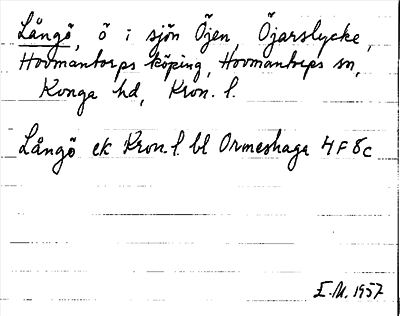 Långö, ö i sjön Öjen Öjarslycke,
Hovmantorps köping, Hovmantorps sn,
Konga hd, Kron. l.
Långö ek Kron. l. bl Ormeshaga 4F8c
E.M. 1957